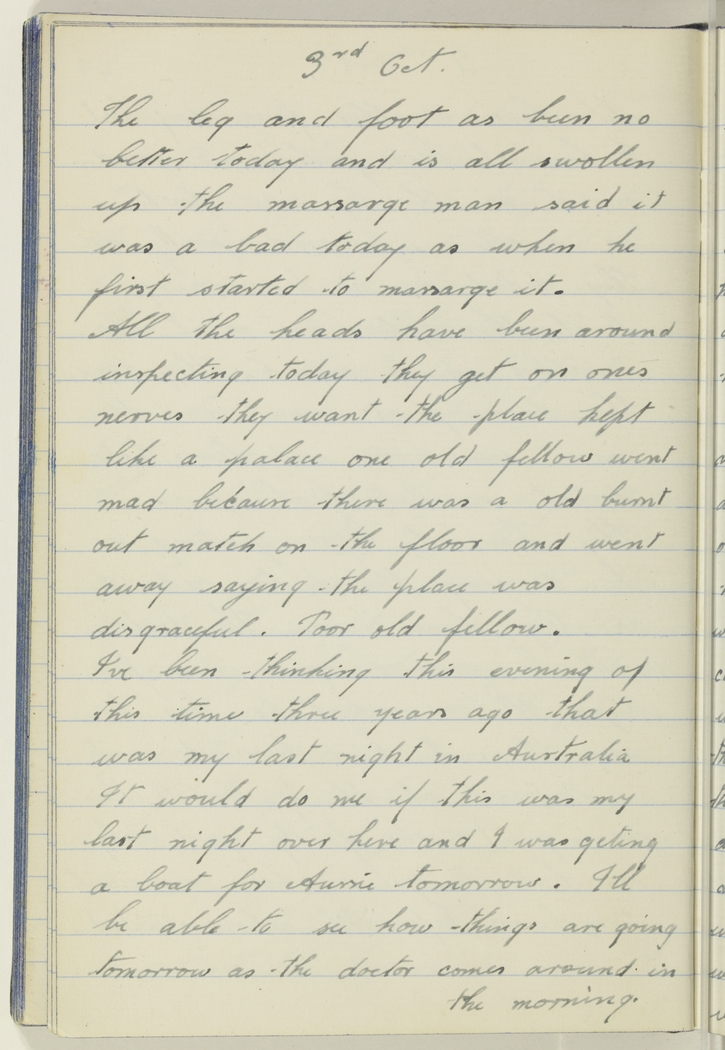 3rd Oct.
The leg and foot as been no
better today and is all swollen
up the massarge man said it
was a bad today as when he
first started to massarge it.
All the heads have been around
inspecting today they get on ones
nerves they want the place kept
like a palace one old fellow went
mad because there was a old burnt
out match on the floor and went
away saying the place was
disgraceful. Poor old fellow.
I've been thinking this evening of
this time three years ago that
was my last night in Australia
It would do me if this was my
last night over here and I was geting
a boat for Aussie tomorrow. I'll
be able to see how things are going
tomorrow as the doctor comes around in
the morning.